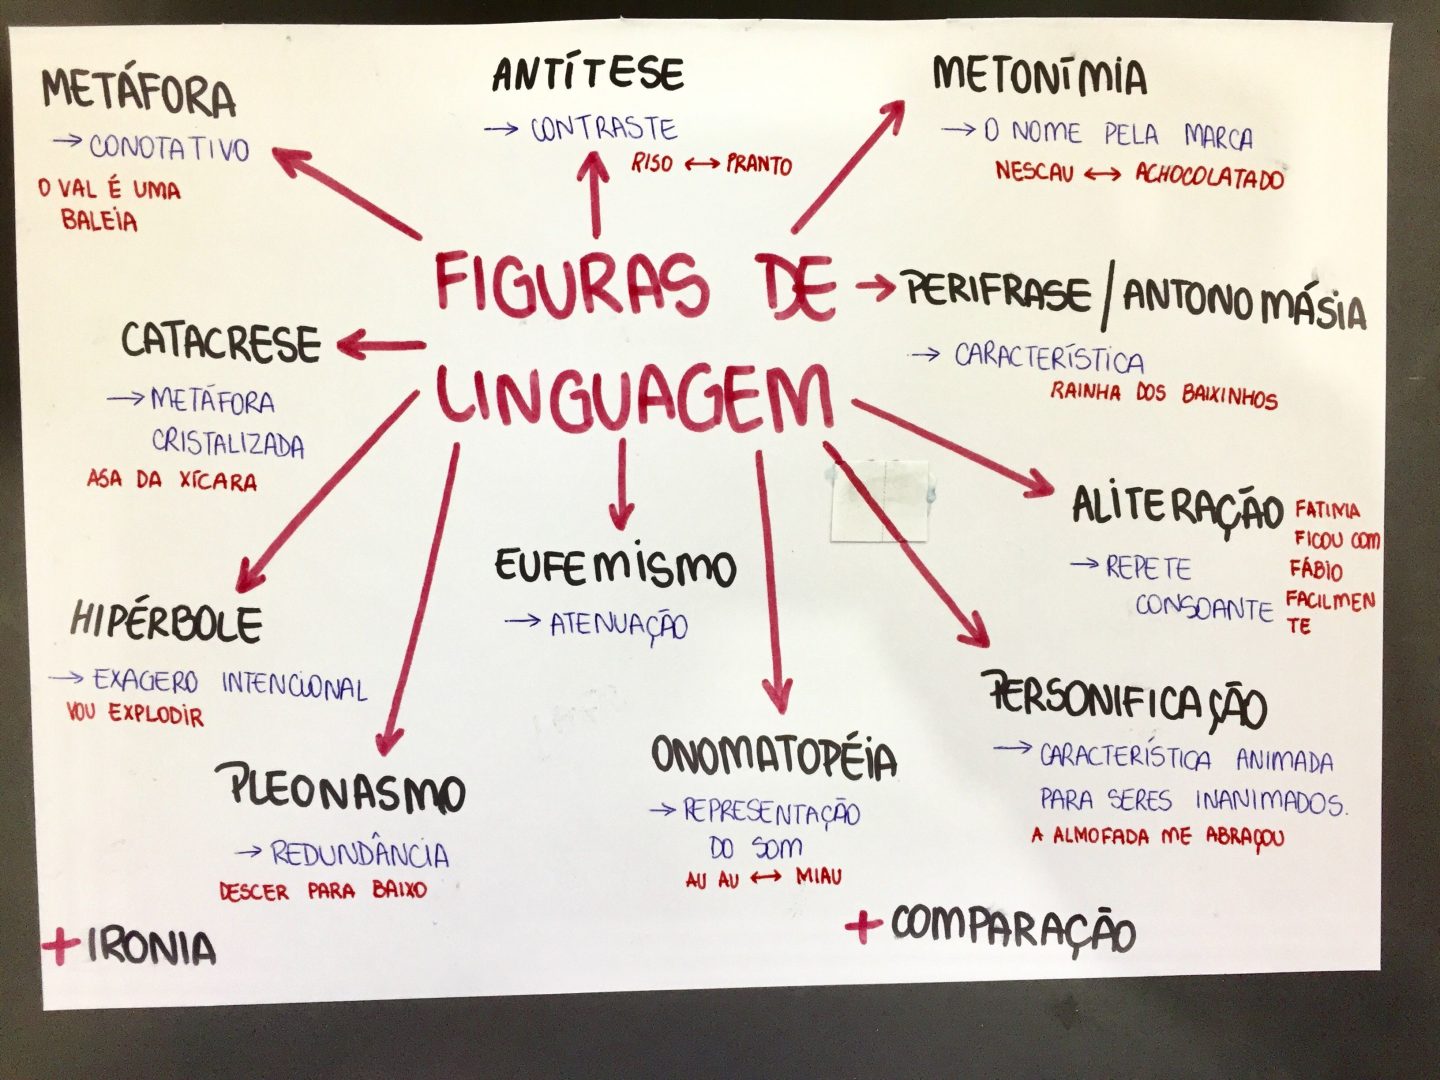 FIGURAS DE
LINGUAGEM
METÁFORA
→ CONOTATIVO
O VAL É UMA
BALEIA
ANTÍTESE
→ CONTRASTE
RISO ↔ PRANTO
METONÍMIA
→ O NOME PELA MARCA
NESCAU ↔ ACHOCOLATADO
PERIFRASE / ANTONOMÁSIA
→ CARACTERÍSTICA
RAINHA DOS BAIXINHOS
CATACRESE
→ METÁFORA
CRISTALIZADA
ASA DA XÍCARA
ALITERAÇÃO
→ REPETE
CONSOANTE
FATIMA
FICOU COM
FÁBIO
FACILMEN
TE
HIPÉRBOLE
→ EXAGERO INTENCIONAL
VOU EXPLODIR
EUFEMISMO
→ ATENUAÇÃO
PERSONIFICAÇÃO
→ CARACTERÍSTICA ANIMADA
PARA SERES INANIMADOS.
A ALMOFADA ME ABRAÇOU
PLEONASMO
→ REDUNDÂNCIA
DESCER PARA BAIXO
ONOMATOPÉIA
→ REPRESENTAÇÃO
DO SOM
AU AU ↔ MIAU
+ IRONIA
+ COMPARAÇÃO